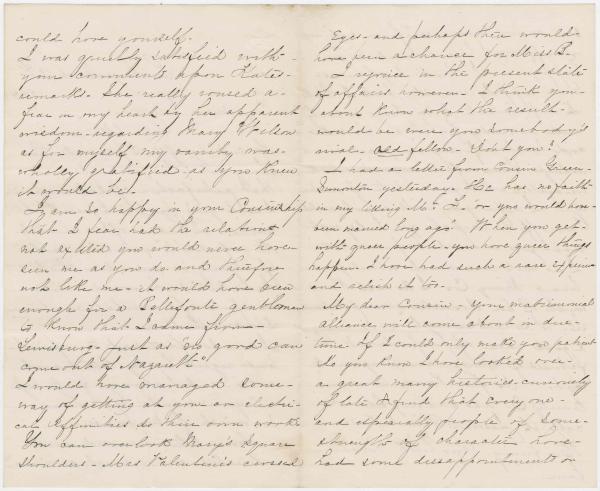 could have yourself.
I was quietly satisfied with-
your comments upon Kates-
remarks. She really roused a-
fear in my heart by her apparent
wisdom- regarding Mary Wilson
as for myself my vanity was-
wholey gratified as you knew
it would be.
I am so happy in your Cousinship
that I fear had the relation
not existed you would never have-
seen me as you do and therefore
not like me- it would have been
enough for a Bellefonte gentleman
to know that I came from-
Lewisburg- just as "no good can
come out of Nazareth"
I would have managed some-
way of getting at you or electri-
cal affinities do their own work
You can overlook Mary's square
shoulders- Mrs Valentine's crossed
Eyes- and perhaps there would-
have been a chance for Miss B.
I rejoice in the present state
of affairs however- I think you-
about know what the result-
would be were you somebody's
rival- old fellow- Don't you?
I had a letter from Cousin Green-
yesterday- He has no faith-
in my liking Mr. L. or you would have-
been married long ago" When you get-
with queer people- you have queer things
happen- I have had such a rare
and relish it too.
My dear Cousin- your matrimonial
alliance will come about in due-
time if I could only make you patient
Do you know I have looked over-
a great many histories- curiously
of late & find that everyone-
and especially people of some-
strength of character have-
had some disappointments or